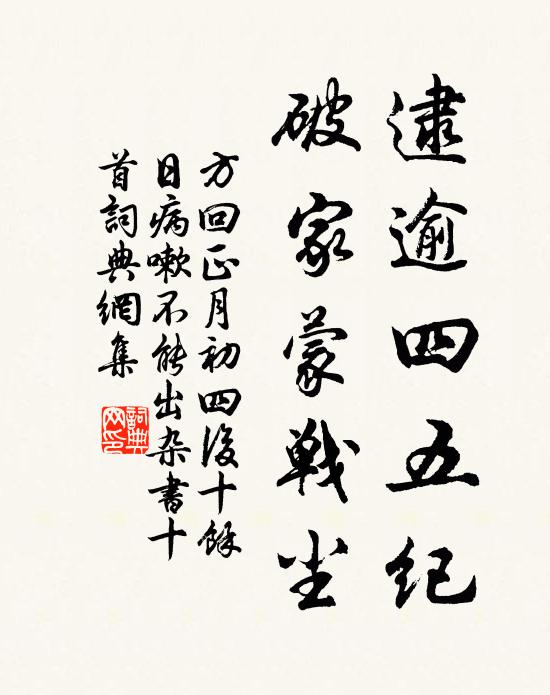 逮逾四五紀
破家蒙戦尘
方回正月初四後十餘
日病嗽不能出杂書十
首詞典網集
詞典
网印